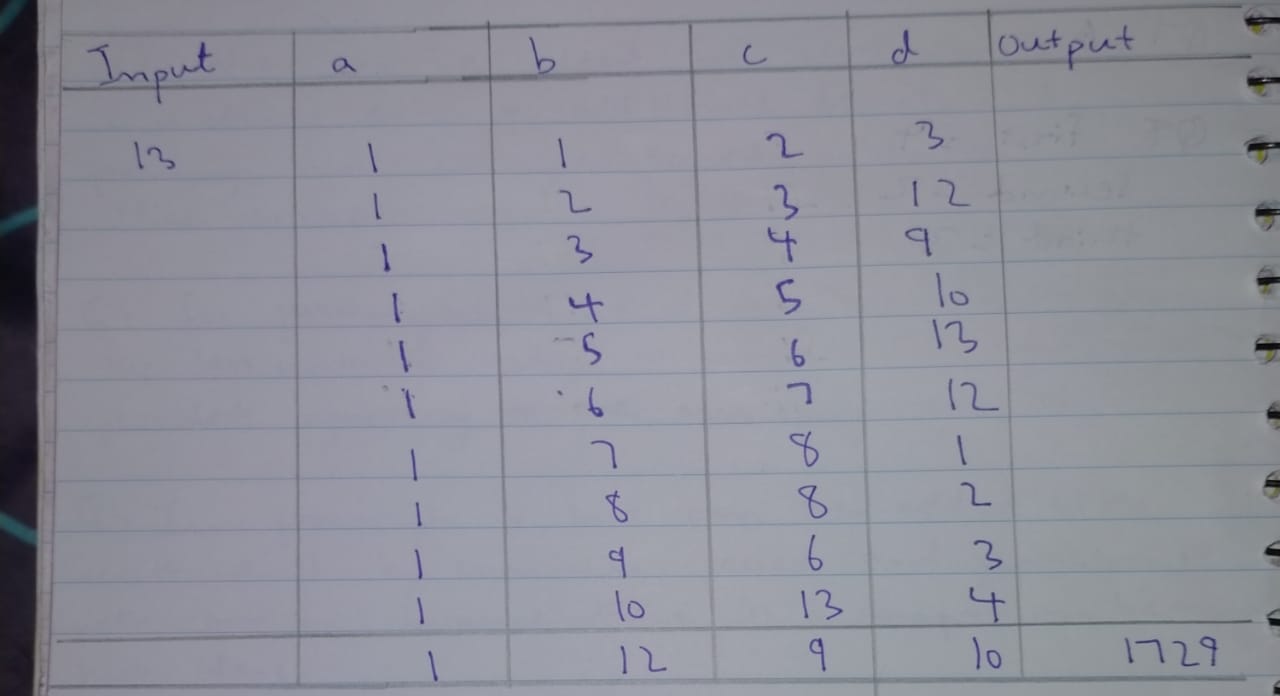 Input a b c d Output
13 1 1 2 3
1 2 3 12
1 3 4 9
1 4 5 10
1 5 6 13
1 6 7 12
1 7 8 1
1 8 8 2
1 9 6 3
1 10 13 4
1 12 9 10 1729